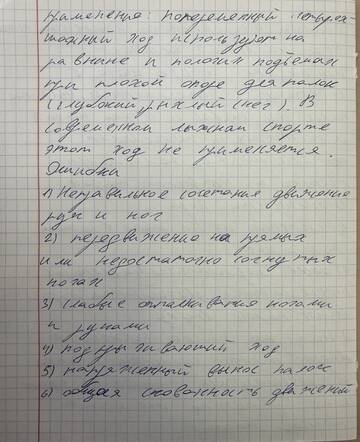 применение: попеременный четырех-
шажный ход используют на
равнине и пологих подъемах
при плохой опоре для палок
(глубокий, рыхлый снег). В
современном лыжном спорте
этот ход не применяется.
Ошибки
1) Неправильное сочетание движение
рук и ног
2) передвижение на прямых
или недостаточно согнутых
ногах
3) слабые отталкивания ногами
и руками
4) подпрыгивающий ход
5) напряженный вынос палок
6) общая скованность движений